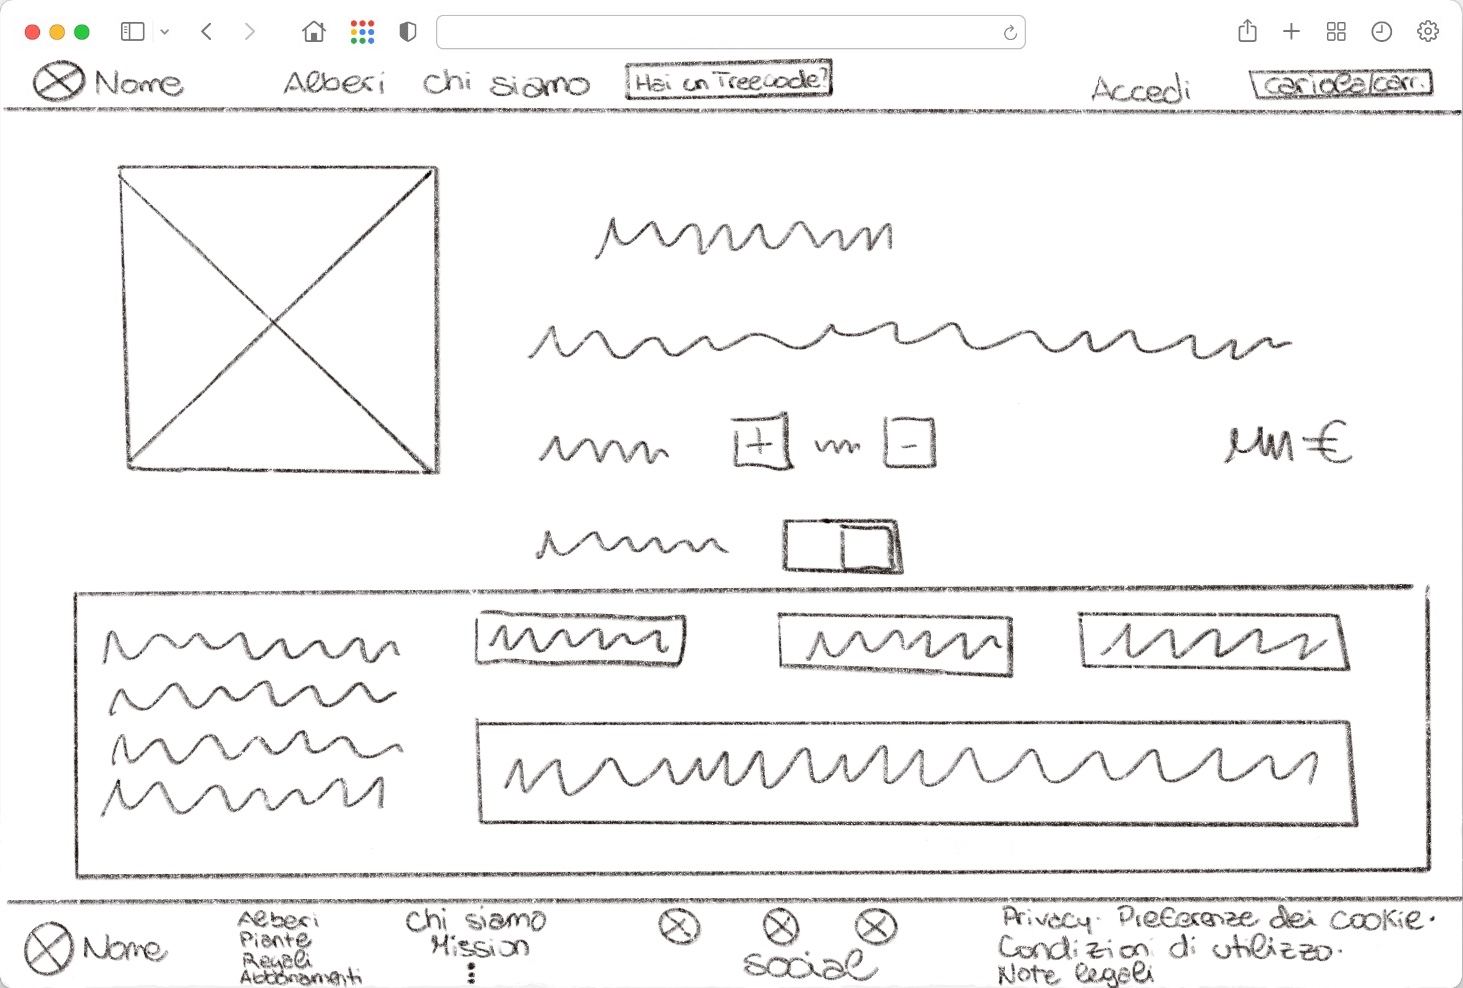 Nome Alberi Chi siamo Hai un TreeCode? Accedi cariola/carr.
+ -
€
Nome
Alberi
Piante
Regali
Abbonamenti
Chi siamo
Mission
social
Privacy. Preferenze dei cookie.
Condizioni di utilizzo.
Note legali